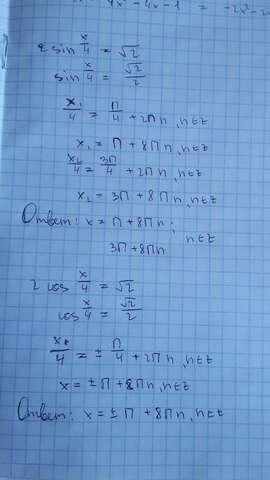 4x² - 4x - 1 = -2x²
2 sin x/4 = √2
sin x/4 = √2/2
x₁/4 = π/4 + 2πn, n∈Z
x₁ = π + 8πn, n∈Z
x₂/4 = 3π/4 + 2πn, n∈Z
x₂ = 3π + 8πn, n∈Z
Ответ: x = π + 8πn;
n∈Z
3π + 8πn
2 cos x/4 = √2
cos x/4 = √2/2
x/4 = ± π/4 + 2πn, n∈Z
x = ± π + 8πn, n∈Z
Ответ: x = ± π + 8πn, n∈Z